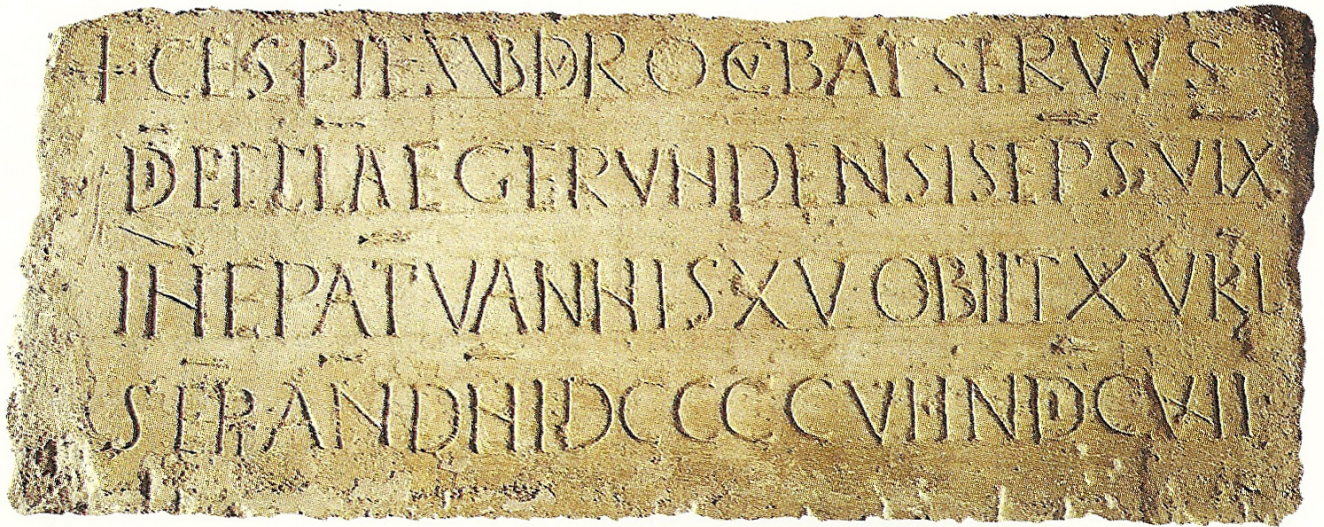 + CESPITE SVB DVRO CVBAT SERVVS
DI ECCLAE GERVNDENSIS EPS VIX
IN EPATV ANNIS XV OBIIT XV KL
SEP AN DNI DCCCCVII INDIC VII